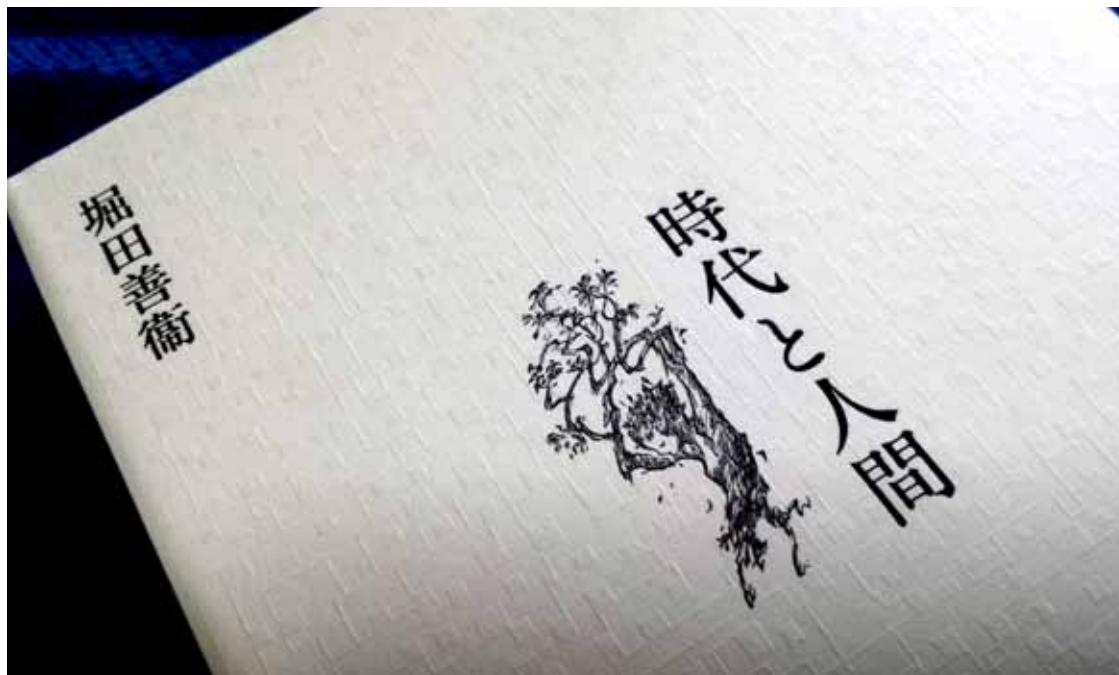 時代と人間
堀田善衞